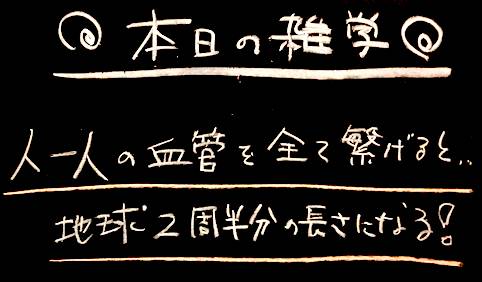 本日の雑学
人一人の血管を全て繋げると..
地球2周半分の長さになる!